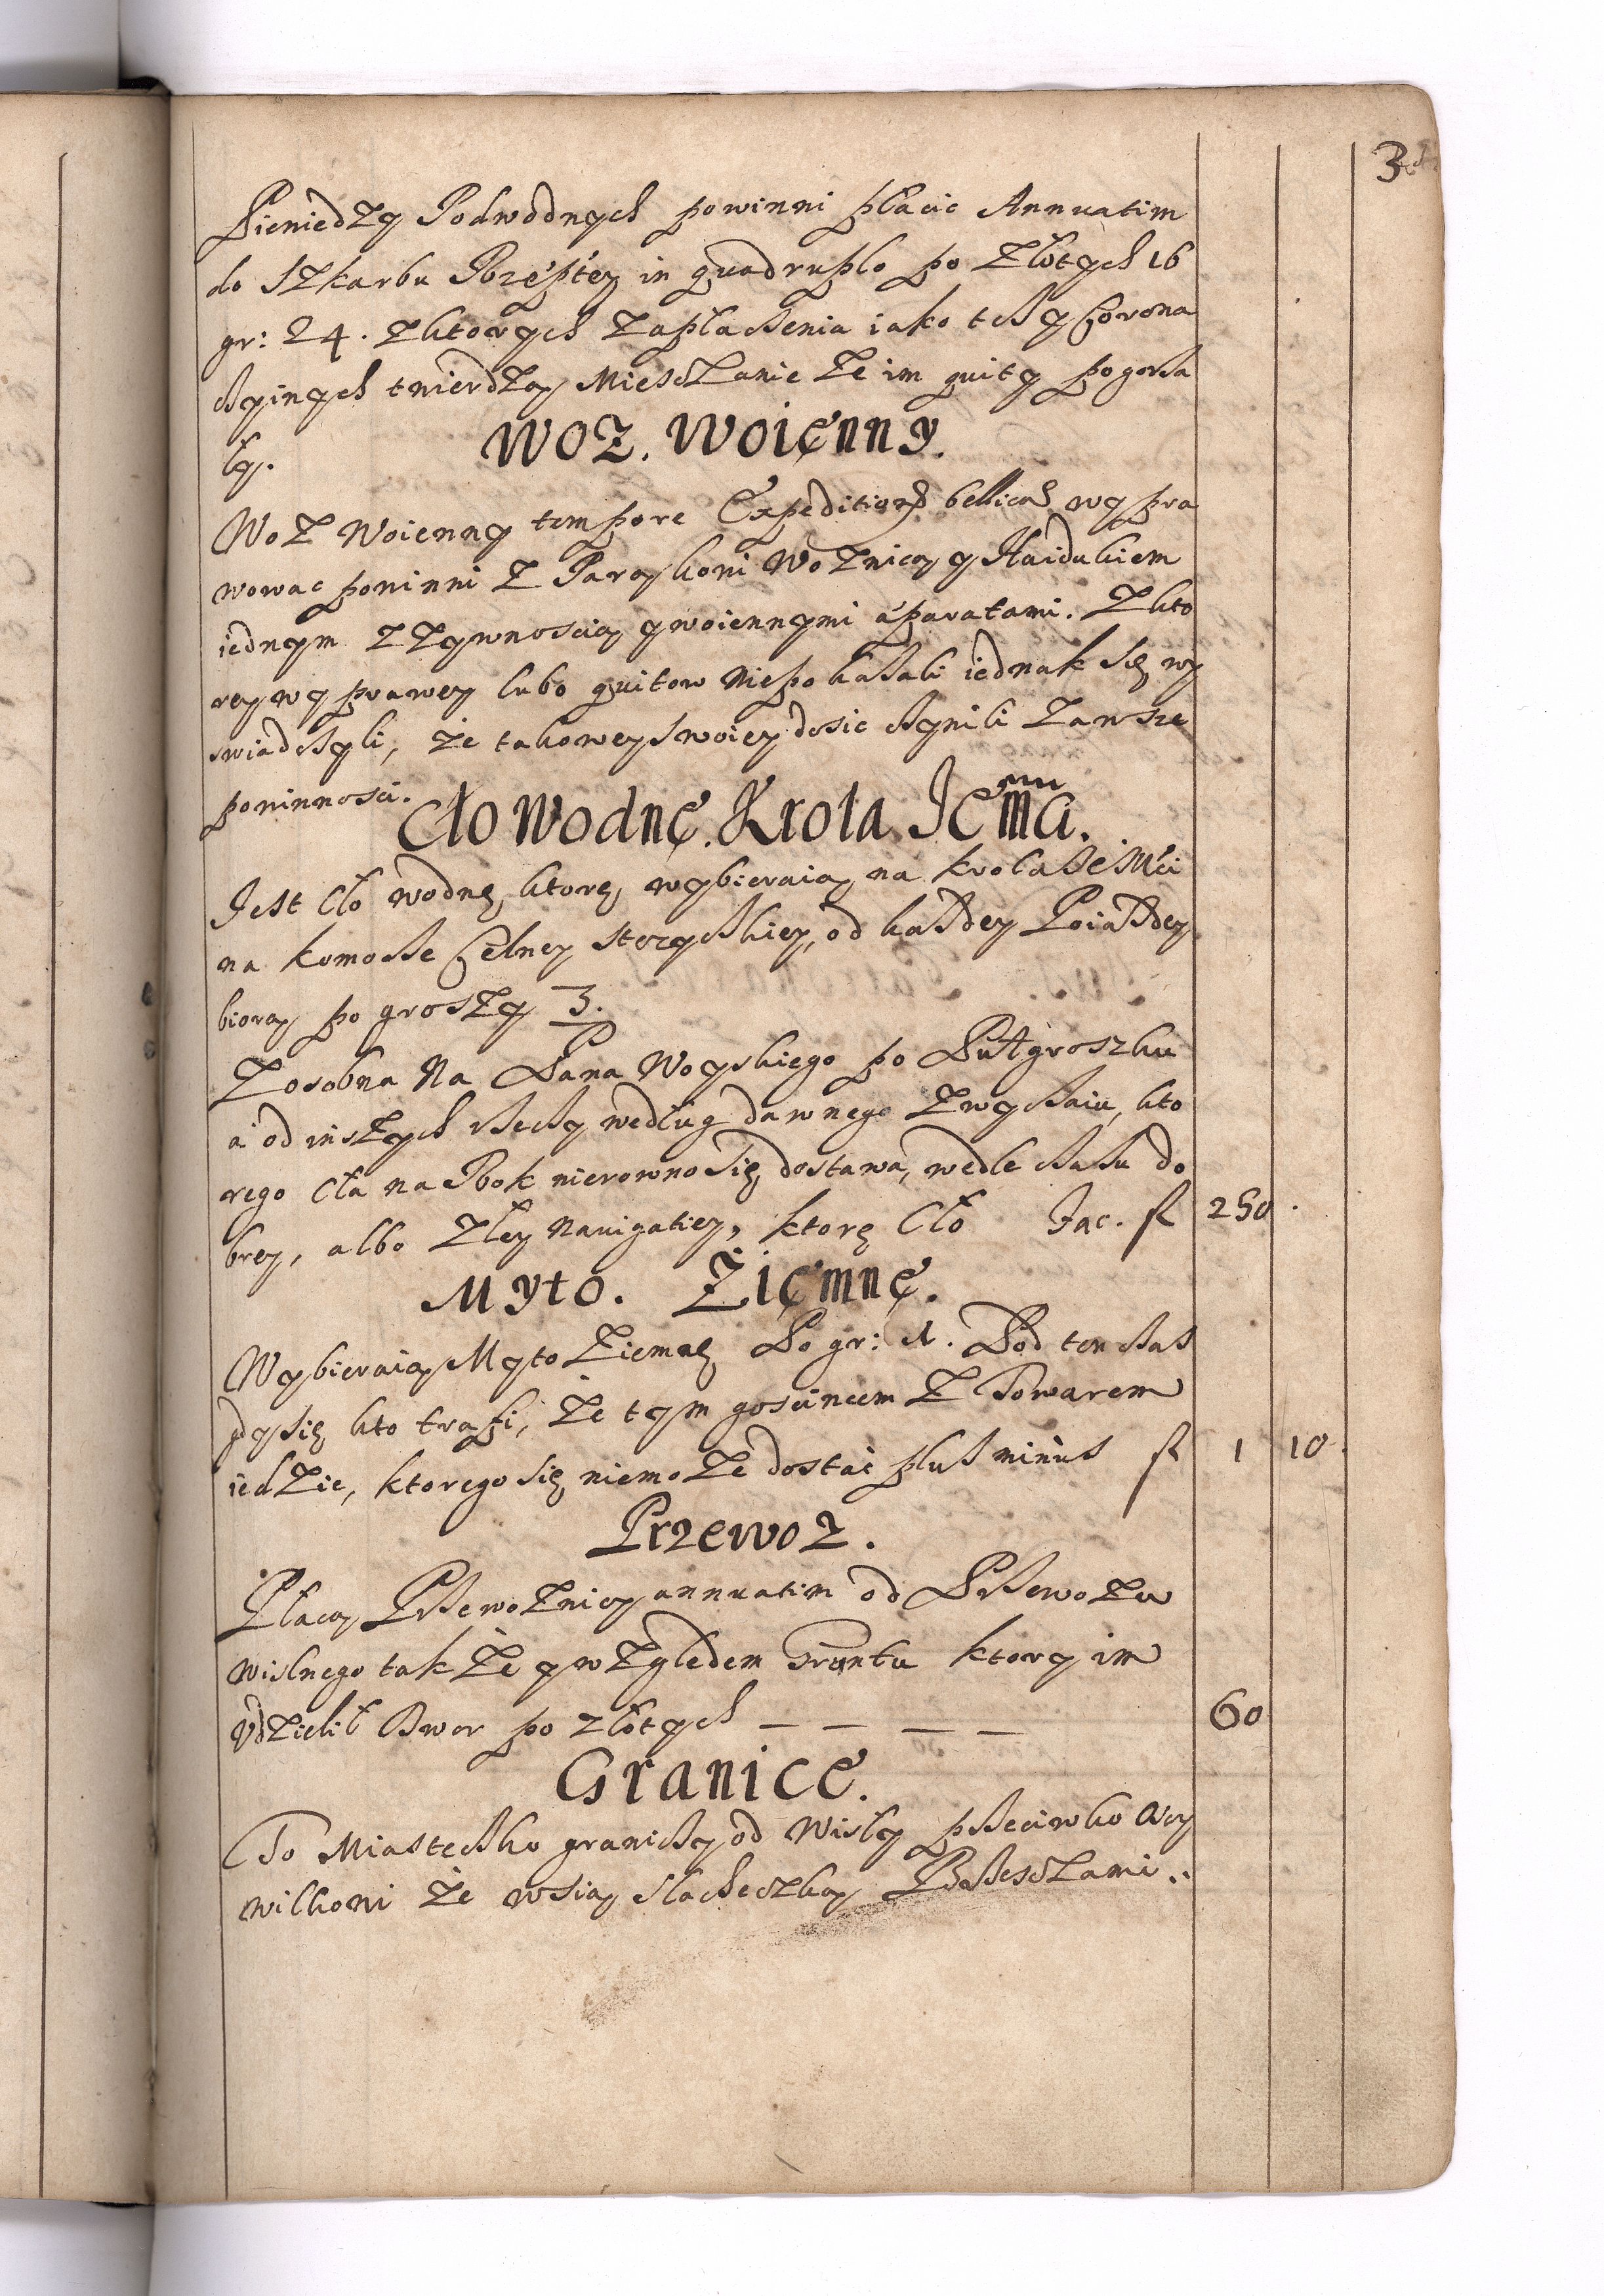 3
Pieniędzy Podwodnych powinni płacic Annuatim
do Szkarbu Rzeptey in quadruplo po Złotych 16
gr: 24. Zktorych zapłaczenia iako też y Corona
czyinych twierdzą Mieszczanie że im quity pogorza
ły.
Woz. Woienny.
Woz Woienny tempore Expeditionis bellicae wypra
wowac powinni z Parą koni Woznicą y Haidukiem
iednym z zywnoscią y woiennymi áparatami. Z kto
rey wyprawey lubo quitow niepokazali iednak się wy
swiadczyli, że takowey swoiey dosic czynili zawsze
powinnosci.
Cło Wodne. Krola Jemci.
Jest Cło wodnę, ktorę, wybieraią na krola Je Mci
na komorze Celney Stezyckiey, od kazdey Poiazdey
biorą po groszy 3.
Zosobna Na Pana Woyskiego po Pułgroszku
á od inszych rzeczy według dawnego zwyczaiu, kto
rego Cła na Rok nierowno się dostawa, wedle czasu do
brey, albo złey nauigatiey, ktorę Cło Fac. fl 250.
Myto. Ziemne.
Wybieraią Myto Ziemnę Po gr: 1. Pod ten czas
gdy się kto trafi, że tym goscincem z Towarem
iedzie, ktorego się niemoże dostać plus minus fl 1 10.
Przewoz.
Płacą Przewoznicy annuatim od Przewozu
wislnego takze y względem Gruntu ktory im
Vdzielił Dwor po złotych — — — — 60
Granice.
To Miasteczko graniczy od Wisły przeciwko
wilkowi ze wsią slachecką